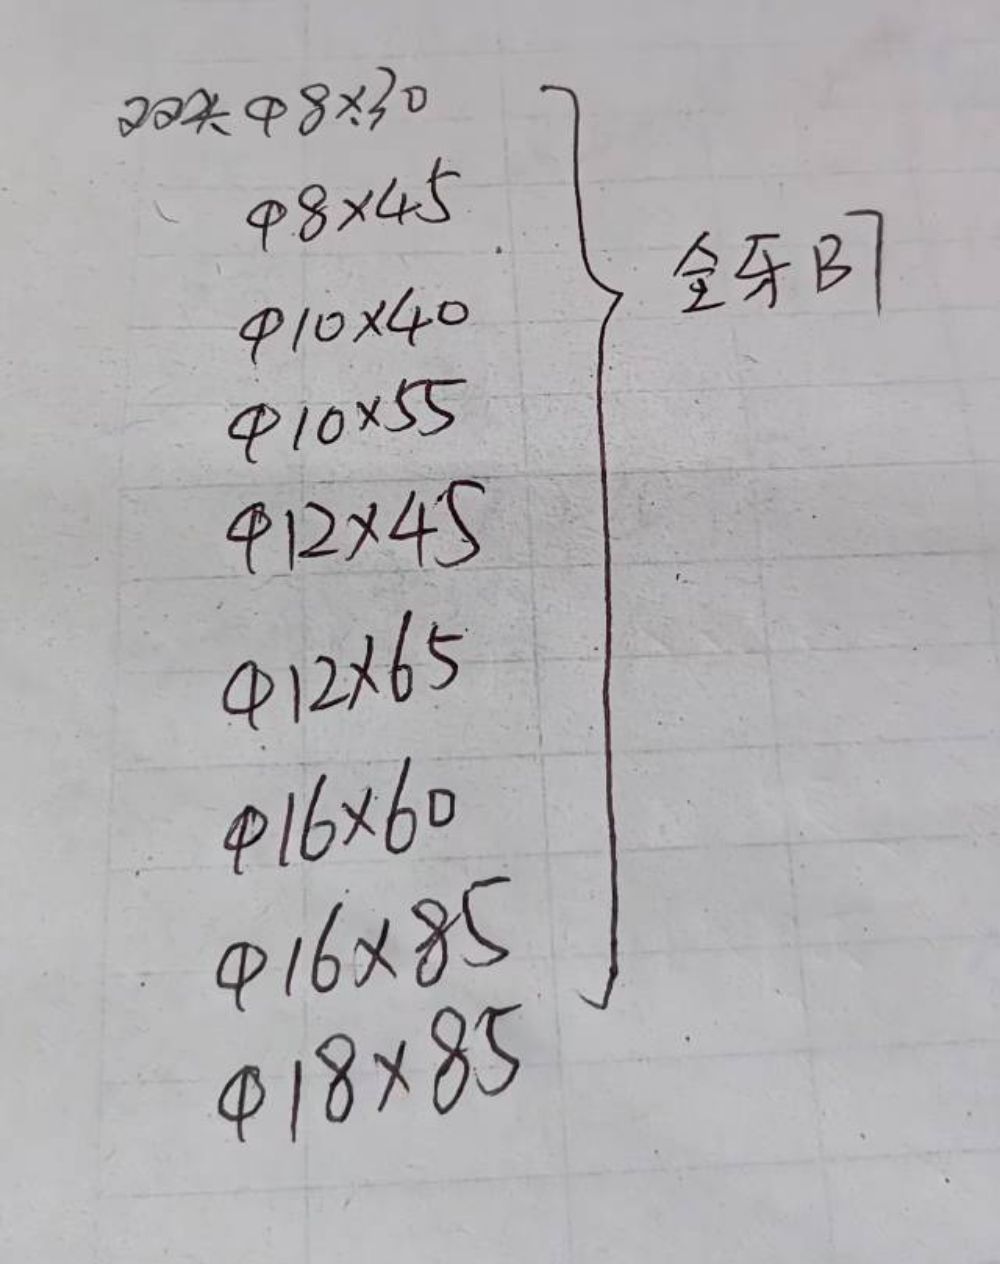 双头 Φ8×30
Φ8×45
Φ10×40
Φ10×55
Φ12×45
Φ12×65
Φ16×60
Φ16×85
Φ18×85
全牙B7